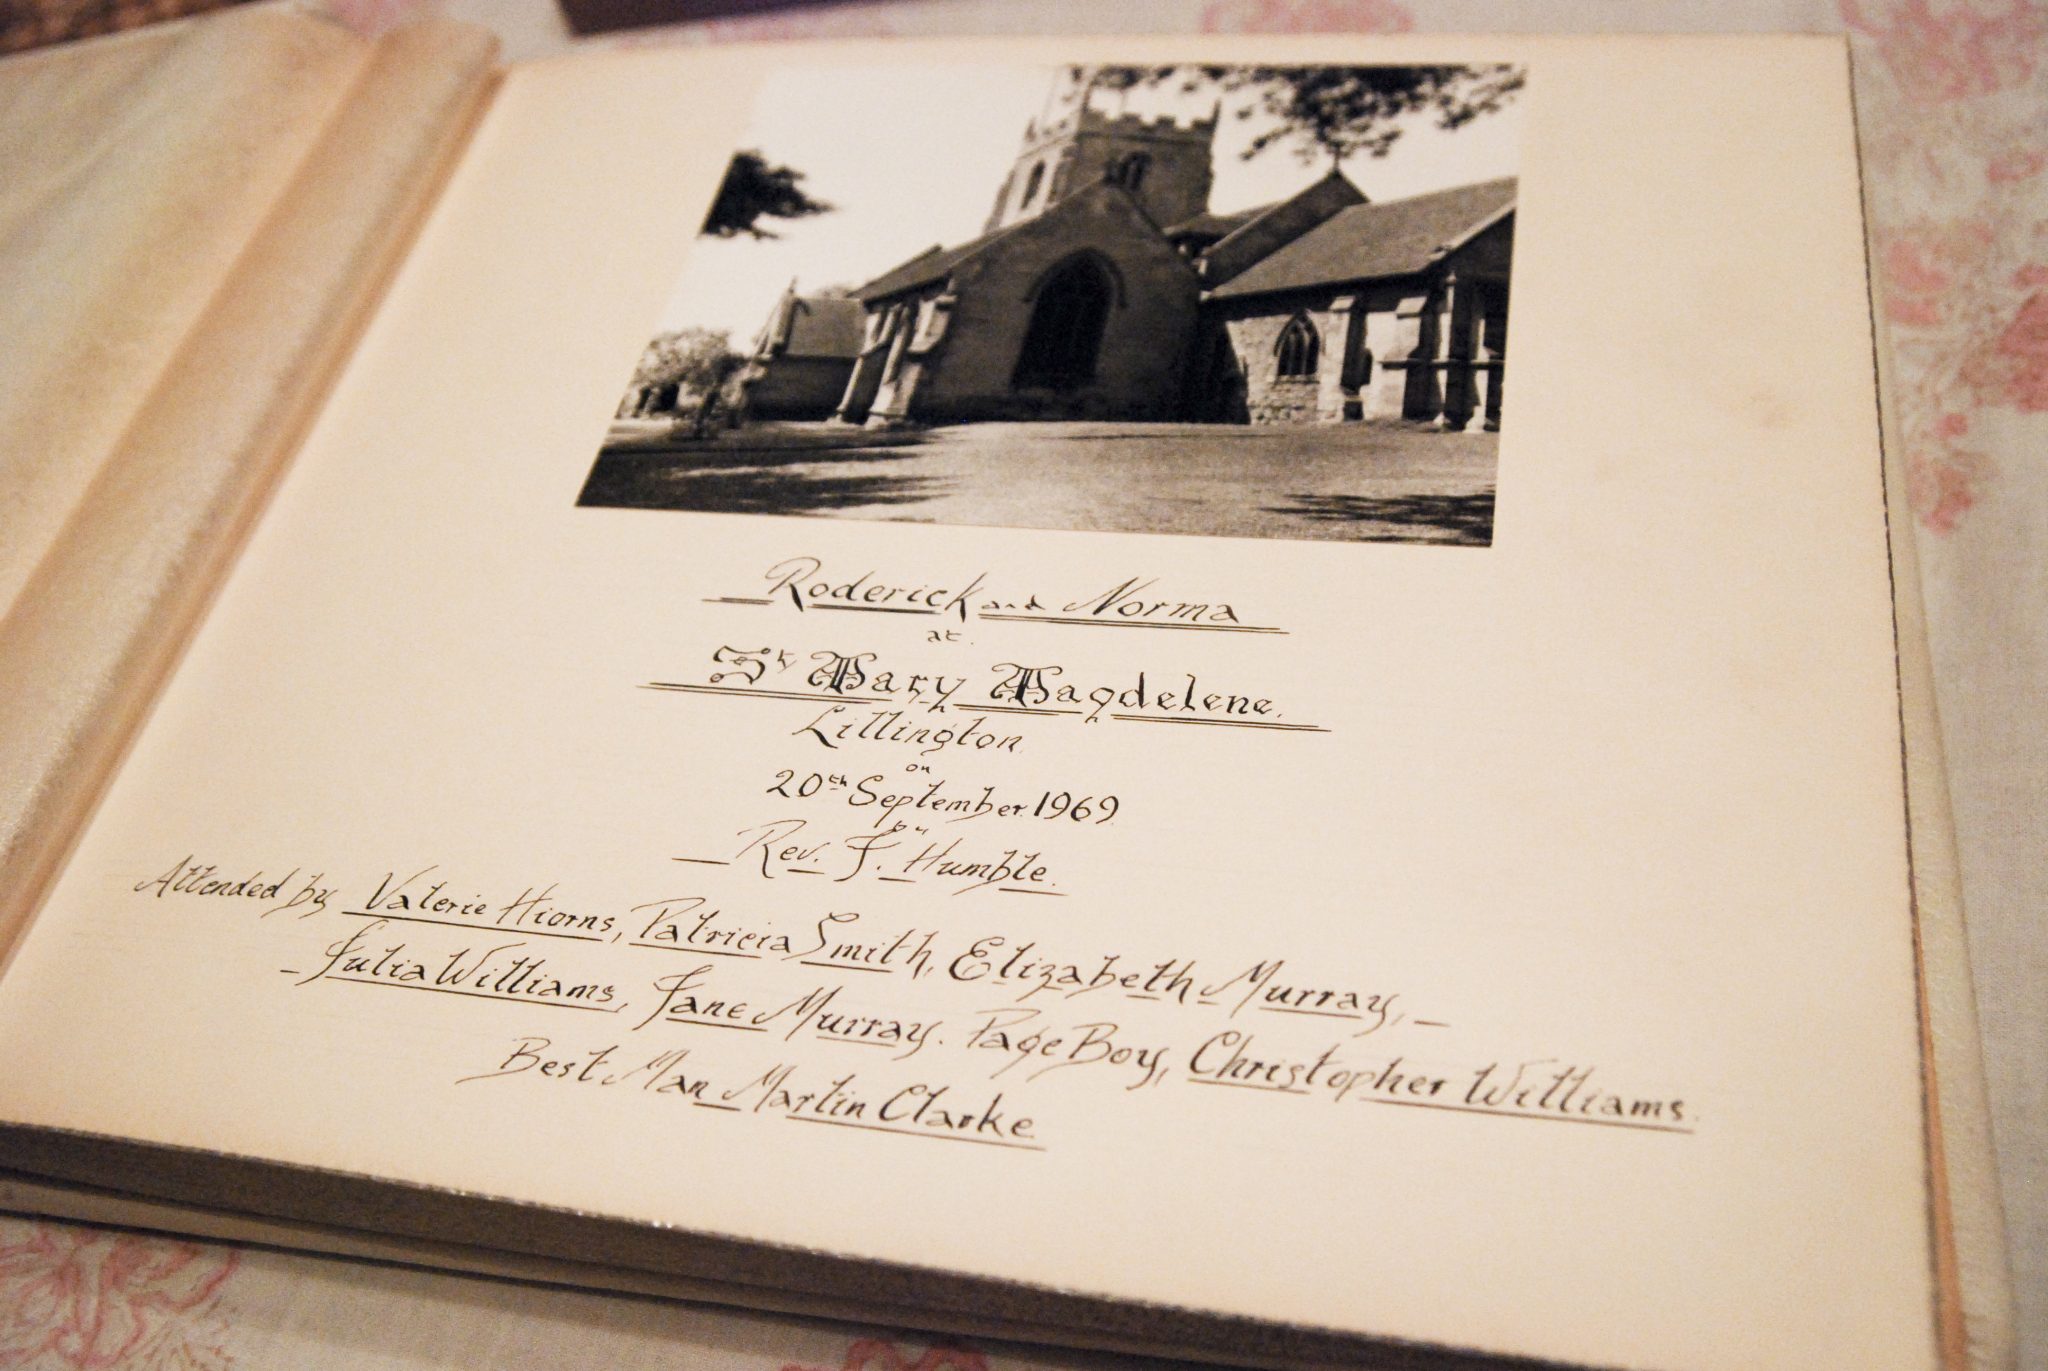 Roderick and Norma
at.
St Mary Magdelene.
Lillington
on
20th September. 1969
by
Rev. J. Humble.
Attended by Valerie Hiorns, Patricia Smith, Elizabeth Murray,
Julia Williams, Jane Murray. Page Boy, Christopher Williams.
Best Man Martin Clarke.